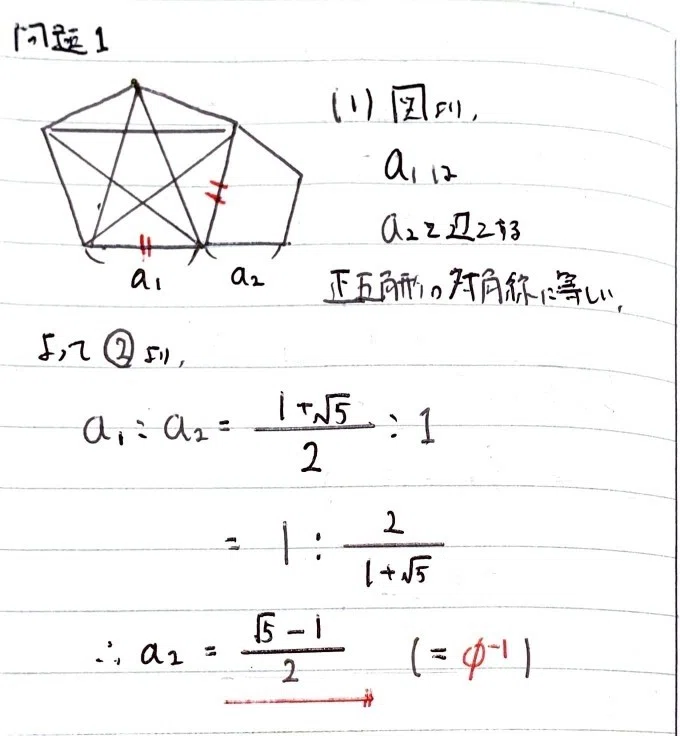 問題1
(1) 図より,
a₁は
a₂を辺とする
正五角形の対角線に等しい,
a₁ a₂
よって②より,
a₁ : a₂ = \frac{1+√5}{2} : 1
= 1 : \frac{2}{1+√5}
∴ a₂ = \frac{√5-1}{2} (= φ⁻¹)